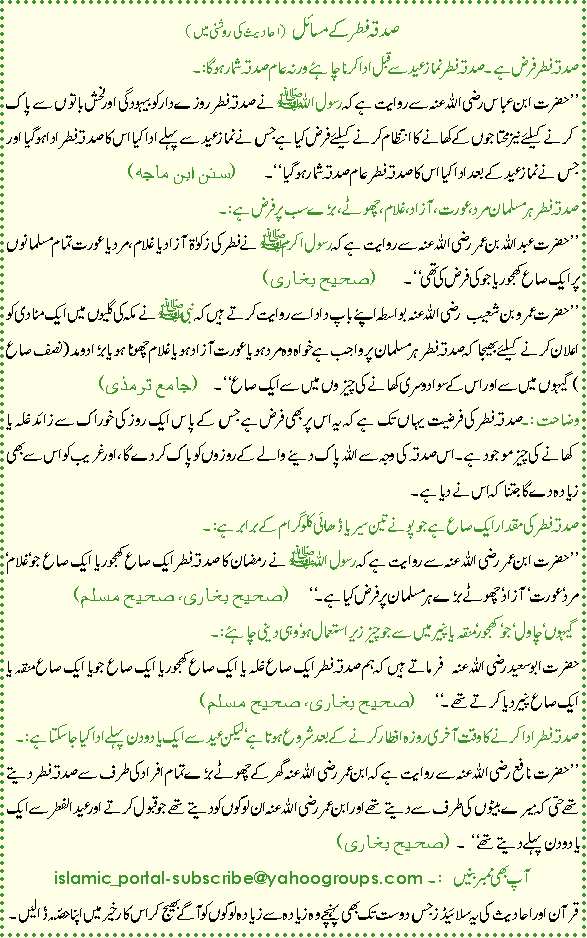 صدقہ فطر کے مسائل (احادیث کی روشنی میں)
صدقہ فطر فرض ہے۔ صدقہ فطر نماز عید سے قبل ادا کرنا چاہئے ورنہ عام صدقہ شمار ہوگا:۔
’’حضرت ابن عباس رضی اللہ عنہ سے روایت ہے کہ رسول اللہ ﷺ نے صدقہ فطر روزے دار کو بیہودگی اور فحش باتوں سے پاک
کرنے کیلئے نیز محتاجوں کے کھانے کا انتظام کرنے کیلئے فرض کیا ہے جس نے نماز عید سے پہلے ادا کیا اس کا صدقہ فطر ادا ہوگیا اور
جس نے نماز عید کے بعد ادا کیا اس کا صدقہ فطر عام صدقہ شمار ہوگیا‘‘۔ (سنن ابن ماجہ)
صدقہ فطر ہر مسلمان مرد، عورت، آزاد، غلام، چھوٹے، بڑے سب پر فرض ہے:۔
’’حضرت عبداللہ بن عمر رضی اللہ عنہ سے روایت ہے کہ رسول اکرم ﷺ نے فطر کی زکوٰۃ آزاد یا غلام، مرد یا عورت تمام مسلمانوں
پر ایک صاع کھجور یا جو کی فرض کی تھی‘‘۔ (صحیح بخاری)
’’حضرت عمرو بن شعیب رضی اللہ عنہ بواسطہ اپنے باپ دادا سے روایت کرتے ہیں کہ نبی ﷺ نے مکہ کی گلیوں میں ایک منادی کو
اعلان کرنے کیلئے بھیجا کہ صدقہ فطر ہر مسلمان پر واجب ہے خواہ وہ مرد ہو یا عورت آزاد ہو یا غلام چھوٹا ہو یا بڑا دو مد (نصف صاع
) گیہوں میں سے اور اس کے سوا دوسری کھانے کی چیزوں میں سے ایک صاع‘‘۔ (جامع ترمذی)
وضاحت:۔ صدقہ فطر کی فرضیت یہاں تک ہے کہ یہ اس پر بھی فرض ہے جس کے پاس ایک روز کی خوراک سے زائد غلہ یا
کھانے کی چیز موجود ہے۔ اس صدقہ کی وجہ سے اللہ پاک دینے والے کے روزوں کو پاک کر دے گا، اور غریب کو اس سے بھی
زیادہ دے گا جتنا کہ اس نے دیا ہے۔
صدقہ فطر کی مقدار ایک صاع ہے جو پونے تین سیر یا ڈھائی کلوگرام کے برابر ہے:۔
’’حضرت ابن عمر رضی اللہ عنہ سے روایت ہے کہ رسول اللہ ﷺ نے رمضان کا صدقہ فطر ایک صاع کھجور یا ایک صاع جو‘ غلام‘
مرد‘ عورت‘ آزاد‘ چھوٹے بڑے ہر مسلمان پر فرض کیا ہے۔‘‘ (صحیح بخاری، صحیح مسلم)
گیہوں‘ چاول‘ جو‘ کھجور‘ منقہ یا پنیر میں سے جو چیز زیر استعمال ہو‘ وہی دینی چاہئے:۔
حضرت ابو سعید رضی اللہ عنہ فرماتے ہیں کہ ہم صدقہ فطر ایک صاع غلہ یا ایک صاع کھجور یا ایک صاع جو یا ایک صاع منقہ یا
ایک صاع پنیر دیا کرتے تھے۔‘‘ (صحیح بخاری، صحیح مسلم)
صدقہ فطر ادا کرنے کا وقت آخری روزہ افطار کرنے کے بعد شروع ہوتا ہے‘ لیکن عید سے ایک یا دو دن پہلے ادا کیا جا سکتا ہے:۔
’’حضرت نافع رضی اللہ عنہ سے روایت ہے کہ ابن عمر رضی اللہ عنہ گھر کے چھوٹے بڑے تمام افراد کی طرف سے صدقہ فطر دیتے
تھے حتیٰ کہ میرے بیٹوں کی طرف سے دیتے تھے اور ابن عمر رضی اللہ عنہ ان لوگوں کو دیتے تھے جو قبول کرتے اور عید الفطر سے ایک
یا دو دن پہلے دیتے تھے‘‘۔ (صحیح بخاری)
آپ بھی ممبر بنیں :۔ islamic_portal-subscribe@yahoogroups.com
قرآن اور احادیث کی یہ سلائیڈز جس دوست تک بھی پہنچے وہ زیادہ سے زیادہ لوگوں کو آگے بھیج کر اس کار خیر میں اپنا حصہ ڈالیں۔